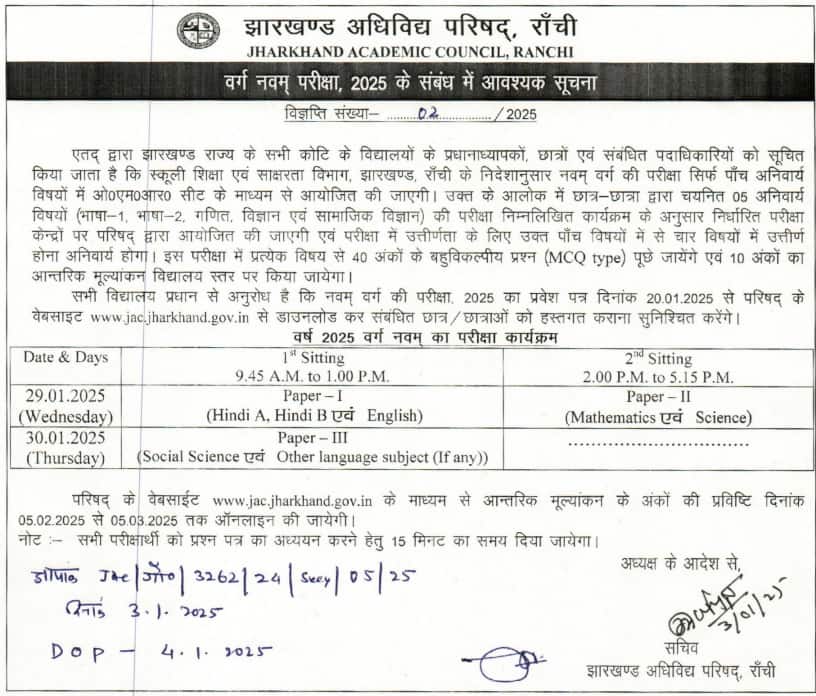 झारखण्ड अधिविद्य परिषद्, राँची
JHARKHAND ACADEMIC COUNCIL, RANCHI
वर्ग नवम् परीक्षा, 2025 के संबंध में आवश्यक सूचना
विज्ञप्ति संख्या– ..........02................/2025
एतद् द्वारा झारखण्ड राज्य के सभी कोटि के विद्यालयों के प्रधानाध्यापकों, छात्रों एवं संबंधित पदाधिकारियों को सूचित
किया जाता है कि स्कूली शिक्षा एवं साक्षरता विभाग, झारखण्ड, राँची के निदेशानुसार नवम् वर्ग की परीक्षा सिर्फ पाँच अनिवार्य
विषयों में ओ०एम०आर० सीट के माध्यम से आयोजित की जाएगी। उक्त के आलोक में छात्र–छात्रा द्वारा चयनित 05 अनिवार्य
विषयों (भाषा–1, भाषा–2, गणित, विज्ञान एवं सामाजिक विज्ञान) की परीक्षा निम्नलिखित कार्यक्रम के अनुसार निर्धारित परीक्षा
केन्द्रों पर परिषद् द्वारा आयोजित की जाएगी एवं परीक्षा में उत्तीर्णता के लिए उक्त पाँच विषयों में से चार विषयों में उत्तीर्ण
होना अनिवार्य होगा। इस परीक्षा में प्रत्येक विषय से 40 अंकों के बहुविकल्पीय प्रश्न (MCQ type) पूछे जायेंगे एवं 10 अंकों का
आन्तरिक मूल्यांकन विद्यालय स्तर पर किया जायेगा।
सभी विद्यालय प्रधान से अनुरोध है कि नवम् वर्ग की परीक्षा, 2025 का प्रवेश पत्र दिनांक 20.01.2025 से परिषद् के
वेबसाइट www.jac.jharkhand.gov.in से डाउनलोड कर संबंधित छात्र/छात्राओं को हस्तगत कराना सुनिश्चित करेंगे।
वर्ष 2025 वर्ग नवम् का परीक्षा कार्यक्रम
Date & Days 1st Sitting 2nd Sitting
9.45 A.M. to 1.00 P.M. 2.00 P.M. to 5.15 P.M.
29.01.2025 Paper – I Paper – II
(Wednesday) (Hindi A, Hindi B एवं English) (Mathematics एवं Science)
30.01.2025 Paper – III ................................
(Thursday) (Social Science एवं Other language subject (If any))
परिषद् के वेबसाईट www.jac.jharkhand.gov.in के माध्यम से आन्तरिक मूल्यांकन के अंकों की प्रविष्टि दिनांक
05.02.2025 से 05.03.2025 तक ऑनलाइन की जायेगी।
नोट :– सभी परीक्षार्थी को प्रश्न पत्र का अध्ययन करने हेतु 15 मिनट का समय दिया जायेगा।
अध्यक्ष के आदेश से,
ज्ञापांक JAC/गो०/3262/24/Secy/05/25
दिनांक 3.1.2025
3/01/25
DOP – 4.1.2025
सचिव
झारखण्ड अधिविद्य परिषद्, राँची